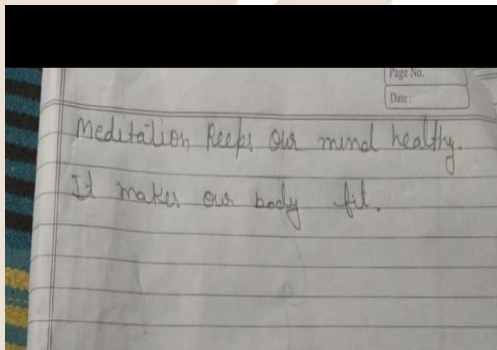 Page No.
Date :
Meditation keeps our mind healthy.
It makes our body fit.